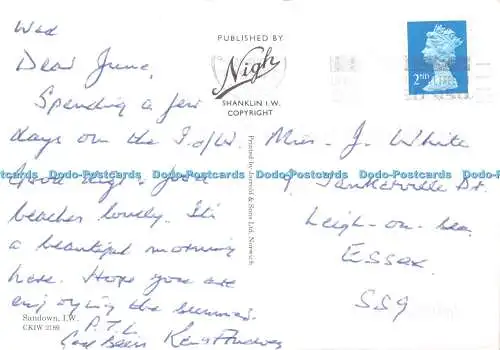 Wed
Dear June,
Spending a few
days on the I.O.W.
beaches lovely. It's
a beautiful morning
here. Hope you are
enjoying the summer.
P.T.L.
God Bless
Sandown, I.W.
CKIW 2189
PUBLISHED BY
Nigh
SHANKLIN I.W.
COPYRIGHT
Printed by Jarrold & Sons Ltd, Norwich
2ND
Miss J. White
9
Leigh-on-Sea
ESSEX
SS9
Dodo-Postcards Dodo-Postcards Dodo-Postcards Dodo-Postcards Dodo-Postcards Dodo-Postcards